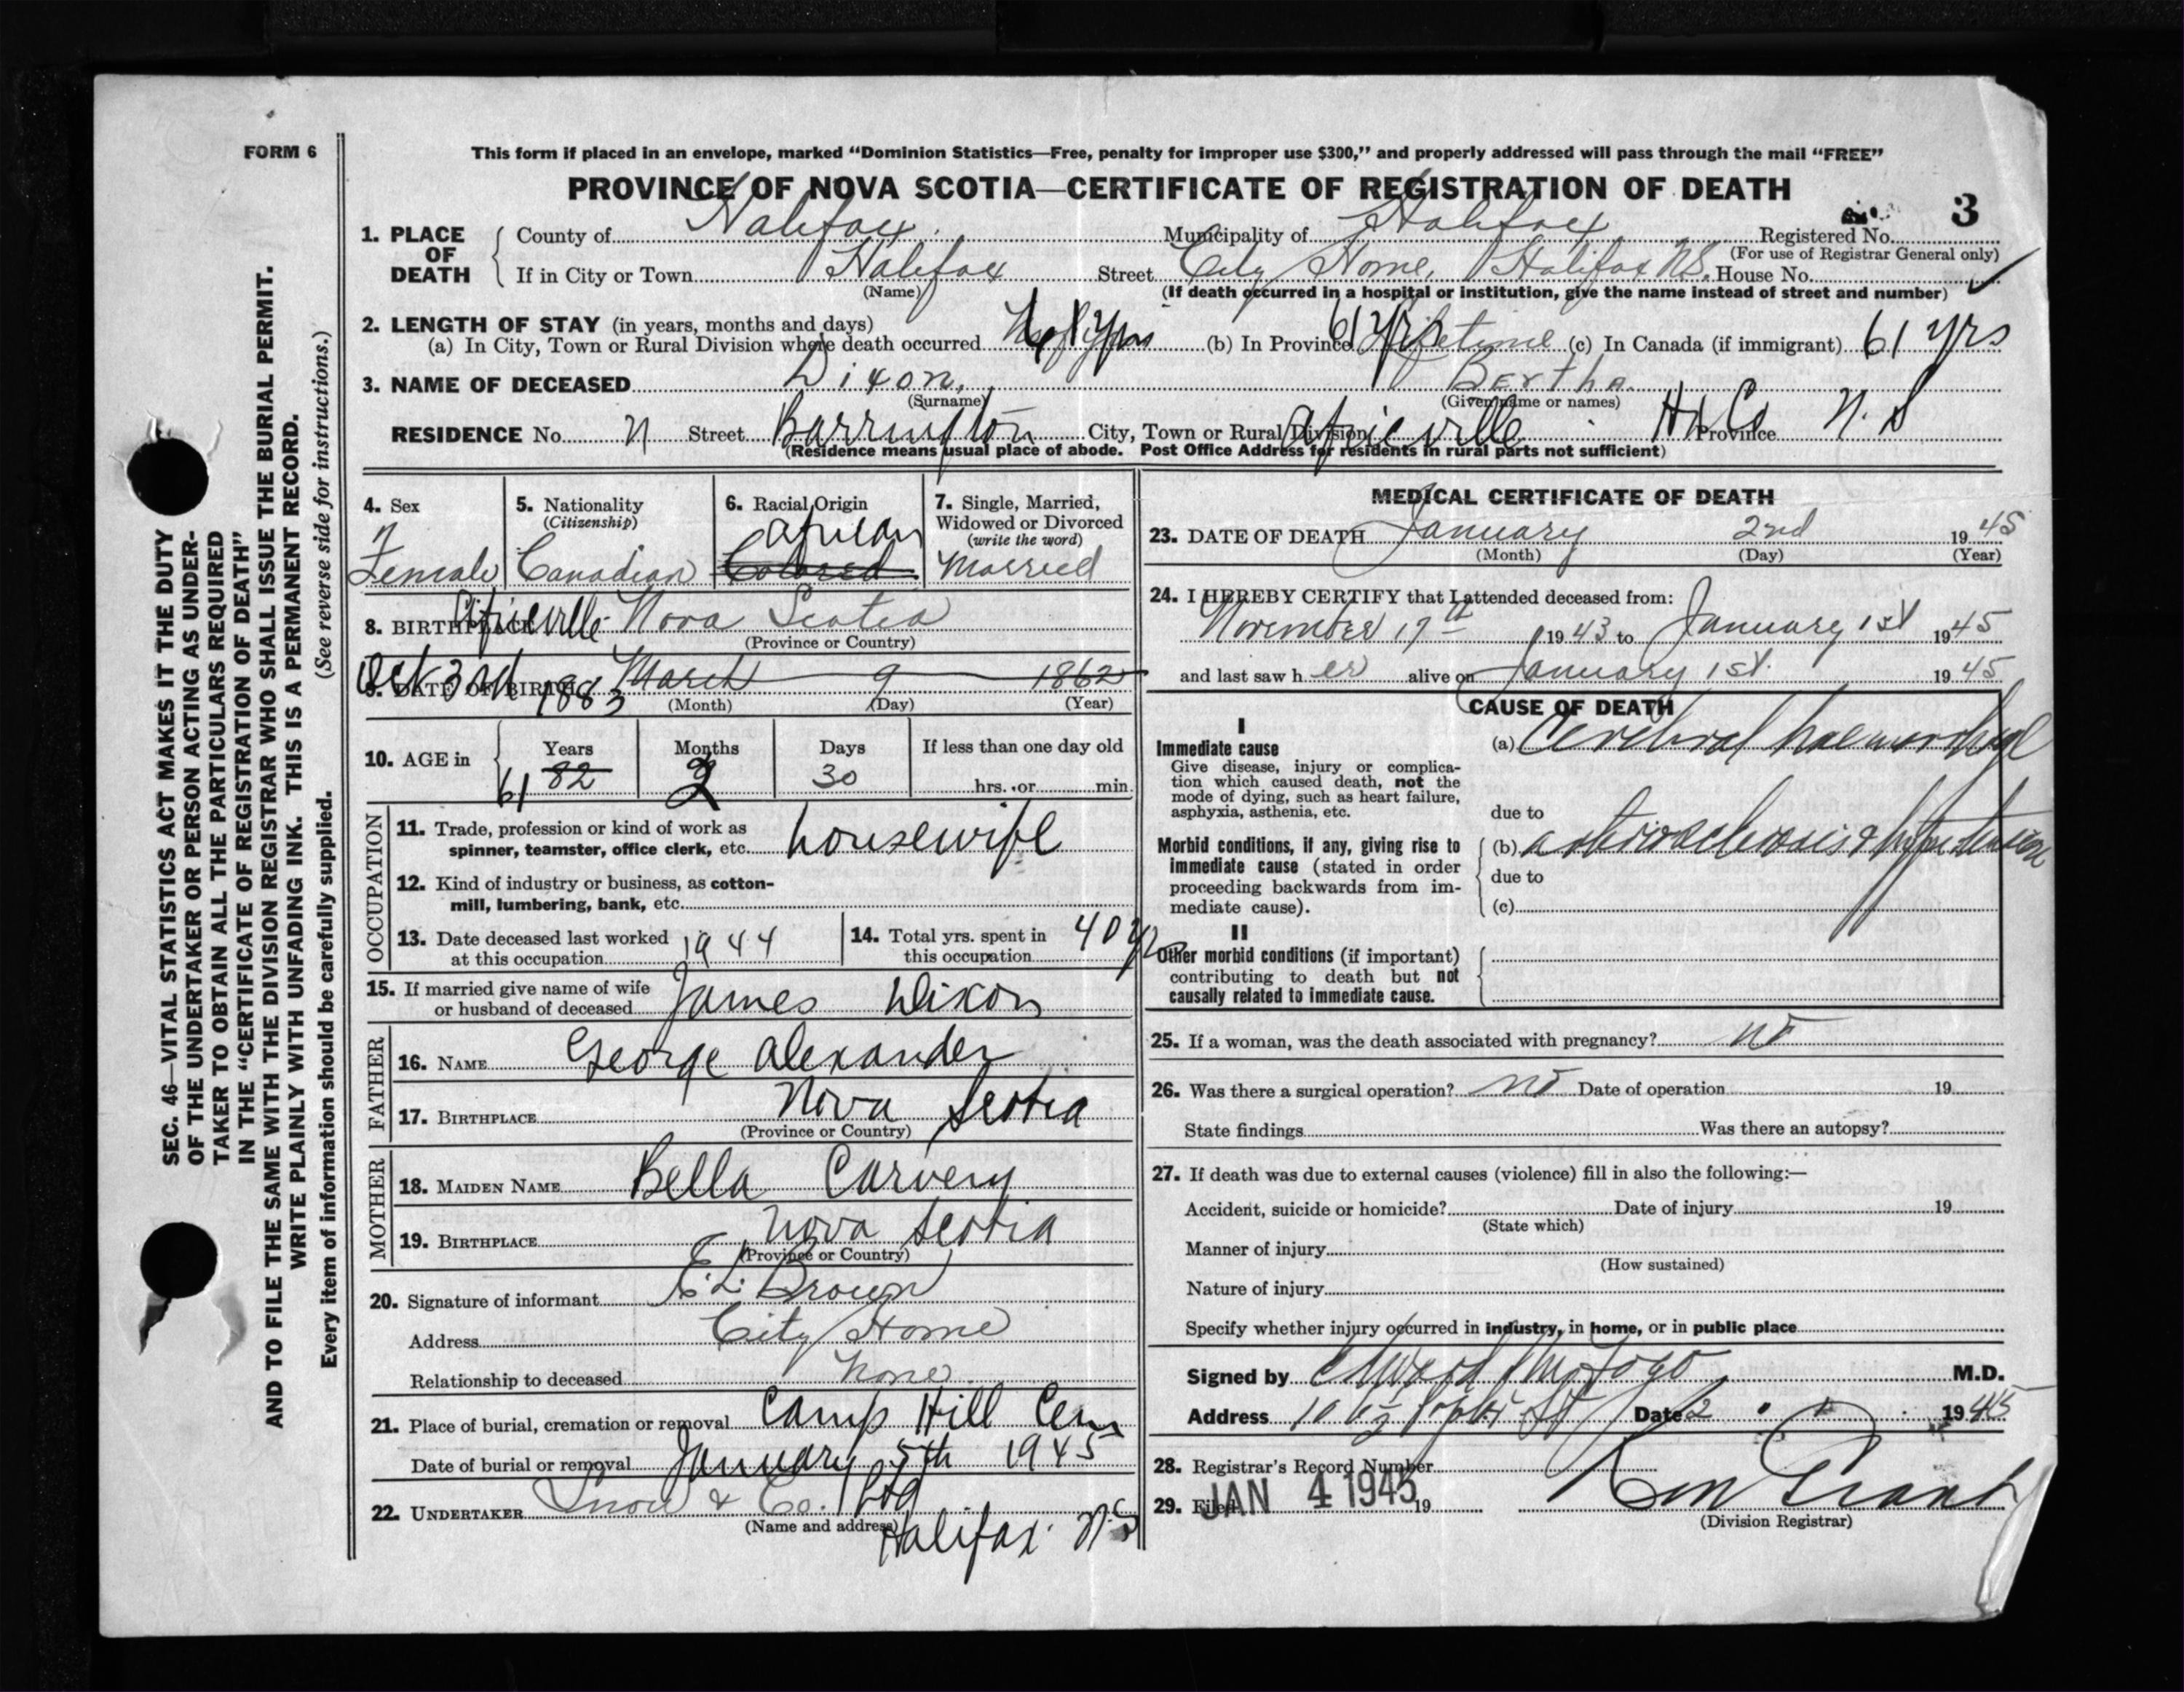 FORM 6
This form if placed in an envelope, marked “Dominion Statistics—Free, penalty for improper use $300,” and properly addressed will pass through the mail “FREE”
PROVINCE OF NOVA SCOTIA—CERTIFICATE OF REGISTRATION OF DEATH
3
1. PLACE OF DEATH
County of Halifax Municipality of Halifax Registered No.
(For use of Registrar General only)
If in City or Town Halifax Street City Home, Halifax N.S. House No.
(Name) (If death occurred in a hospital or institution, give the name instead of street and number)
2. LENGTH OF STAY (in years, months and days)
(a) In City, Town or Rural Division where death occurred (b) In Province 61 yrs Lifetime (c) In Canada (if immigrant) 61 yrs
3. NAME OF DECEASED Dixon, Bertha
(Surname) (Given name or names)
RESIDENCE No. n Street Barrington City, Town or Rural Division Africville Hx Co Province N.S
(Residence means usual place of abode. Post Office Address for residents in rural parts not sufficient)
4. Sex
Female
5. Nationality
(Citizenship)
Canadian
6. Racial Origin
African
Colored
7. Single, Married,
Widowed or Divorced
(write the word)
Married
8. BIRTHPLACE Africville Nova Scotia
(Province or Country)
9. DATE OF BIRTH Oct 3rd 1883 March 9 1862
(Month) (Day) (Year)
10. AGE in Years Months Days If less than one day old
61 82 2 30 hrs. or min.
OCCUPATION
11. Trade, profession or kind of work as
spinner, teamster, office clerk, etc. housewife
12. Kind of industry or business, as cotton-
mill, lumbering, bank, etc.
13. Date deceased last worked
at this occupation 1944
14. Total yrs. spent in
this occupation 40 yrs
15. If married give name of wife
or husband of deceased James Dixon
FATHER
16. NAME George Alexander
17. BIRTHPLACE Nova Scotia
(Province or Country)
MOTHER
18. MAIDEN NAME Bella Carvery
19. BIRTHPLACE Nova Scotia
(Province or Country)
20. Signature of informant E. L. Brown
Address City Home
Relationship to deceased None
21. Place of burial, cremation or removal Camp Hill Cem
Date of burial or removal January 5th 1945
22. UNDERTAKER Snow & Co. Ltd
(Name and address) Halifax N.S
MEDICAL CERTIFICATE OF DEATH
23. DATE OF DEATH January 2nd 1945
(Month) (Day) (Year)
24. I HEREBY CERTIFY that I attended deceased from:
November 17th 1943 to January 1st 1945
and last saw her alive on January 1st. 1945
CAUSE OF DEATH
I
Immediate cause
Give disease, injury or complica-
tion which caused death, not the
mode of dying, such as heart failure,
asphyxia, asthenia, etc.
(a) Cerebral haemorrhage
due to
Morbid conditions, if any, giving rise to
immediate cause (stated in order
proceeding backwards from im-
mediate cause).
(b) arteriosclerosis & hypertension
due to
(c)
II
Other morbid conditions (if important)
contributing to death but not
causally related to immediate cause.
25. If a woman, was the death associated with pregnancy? no
26. Was there a surgical operation? no Date of operation 19
State findings Was there an autopsy?
27. If death was due to external causes (violence) fill in also the following:—
Accident, suicide or homicide? Date of injury 19
(State which)
Manner of injury
(How sustained)
Nature of injury
Specify whether injury occurred in industry, in home, or in public place
Signed by M.D.
Address Date 2 1945
28. Registrar's Record Number
29. Filed JAN 4 1945 19
(Division Registrar)
SEC. 46—VITAL STATISTICS ACT MAKES IT THE DUTY
OF THE UNDERTAKER OR PERSON ACTING AS UNDER-
TAKER TO OBTAIN ALL THE PARTICULARS REQUIRED
IN THE “CERTIFICATE OF REGISTRATION OF DEATH”
AND TO FILE THE SAME WITH THE DIVISION REGISTRAR WHO SHALL ISSUE THE BURIAL PERMIT.
WRITE PLAINLY WITH UNFADING INK. THIS IS A PERMANENT RECORD.
Every item of information should be carefully supplied. (See reverse side for instructions.)